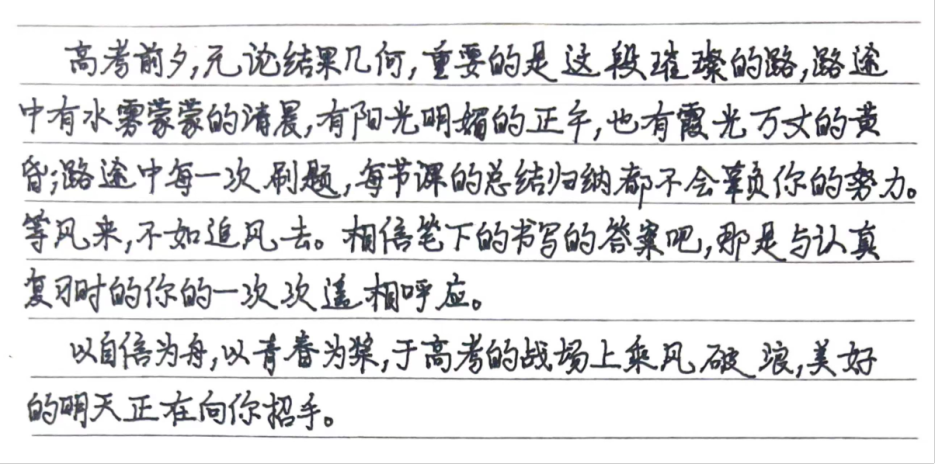 高考前夕,无论结果几何,重要的是这段璀璨的路,路途
中有水雾蒙蒙的清晨,有阳光明媚的正午,也有霞光万丈的黄
昏;路途中每一次刷题,每节课的总结归纳都不会辜负你的努力。
等风来,不如追风去。相信笔下的书写的答案吧,那是与认真
复习时的你的一次次遥相呼应。
以自信为舟,以青春为桨,于高考的战场上乘风破浪,美好
的明天正在向你招手。